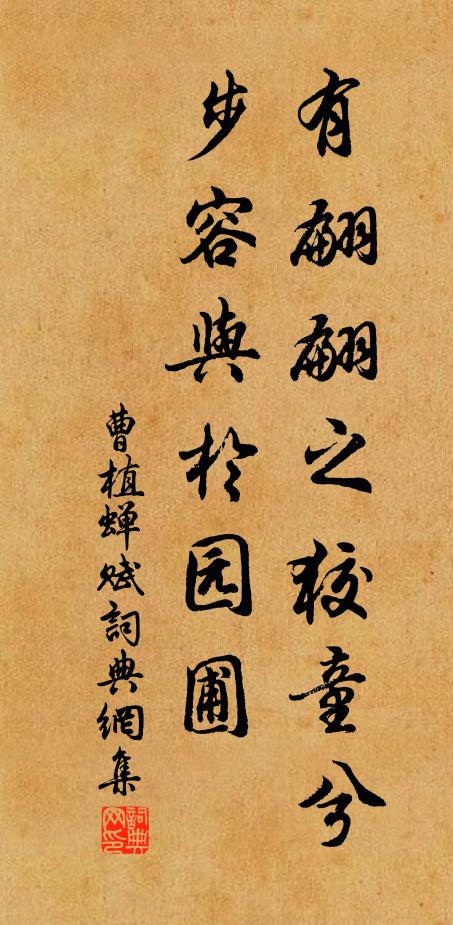 有翩翩之狡童兮
步容與於园圃
曹植蝉赋詞典網集
詞典
网印